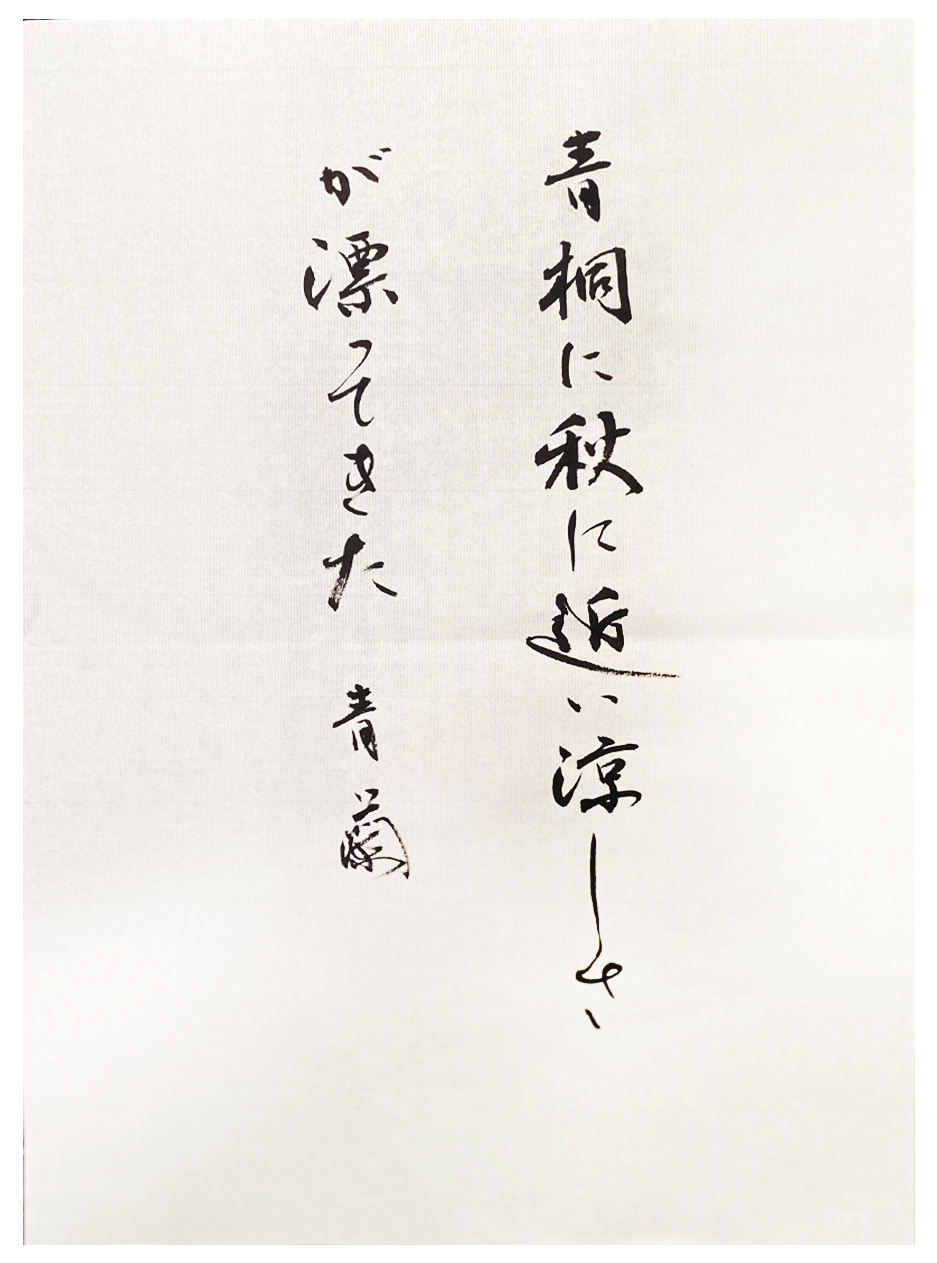 青桐に秋に近い涼しさ
が漂てきた 青蘭